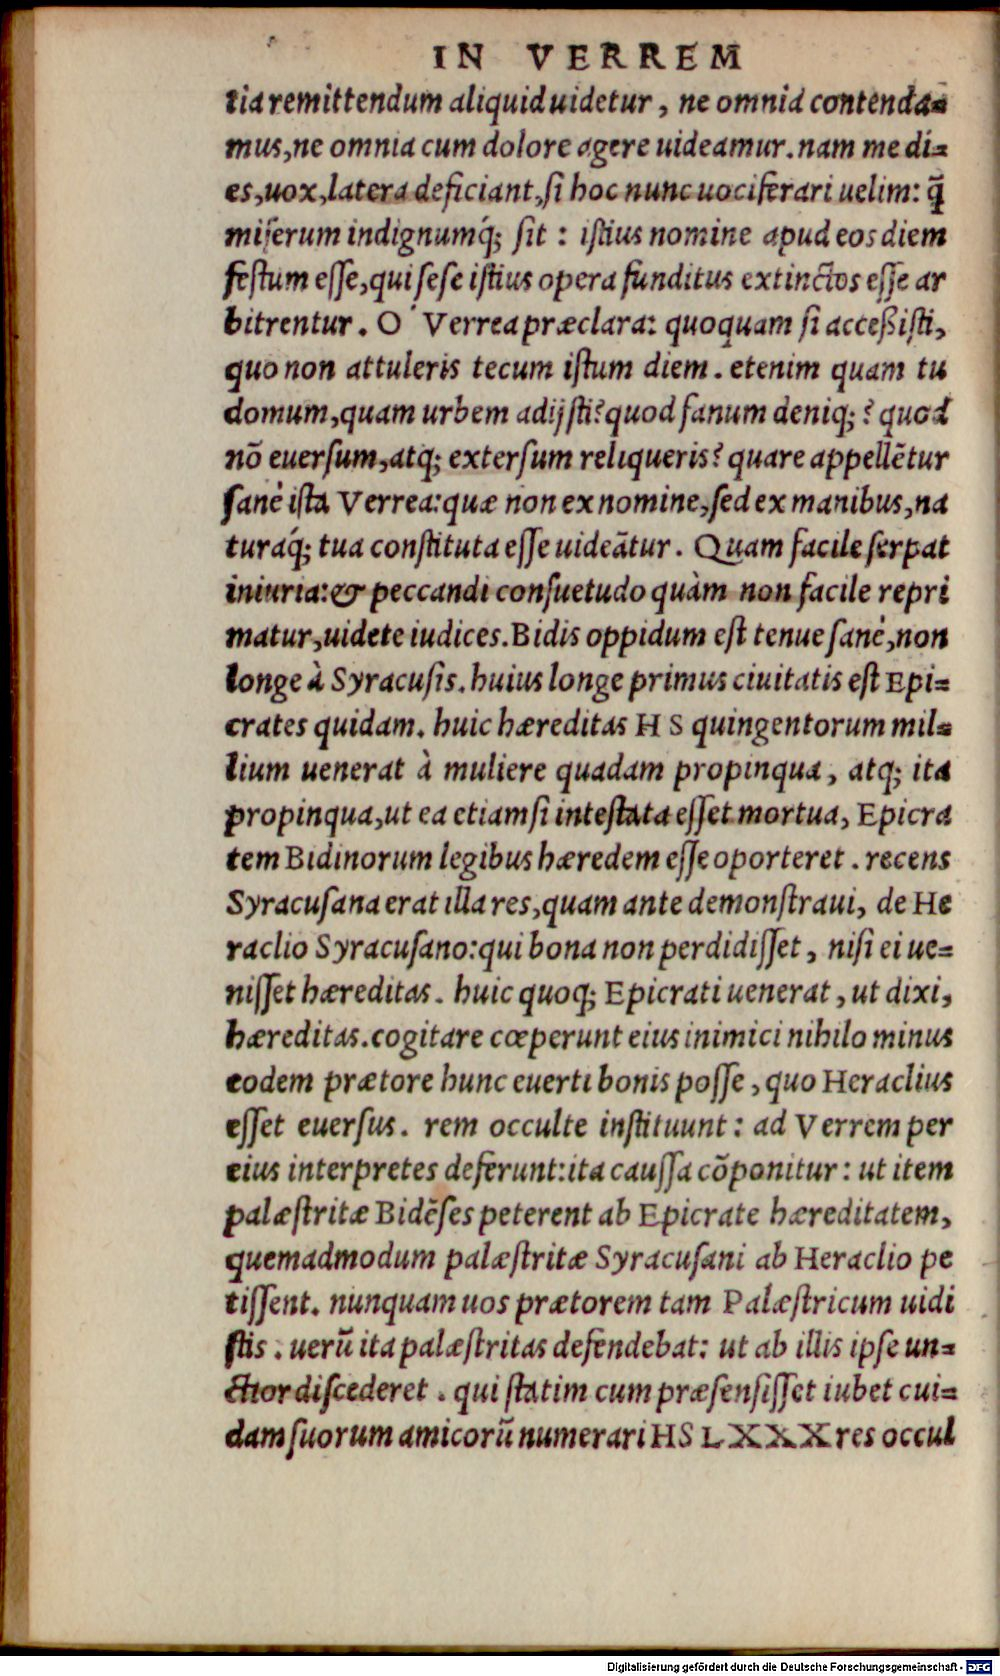 IN VERREM
tia remittendum aliquid uidetur, ne omnia contenda=
mus, ne omnia cum dolore agere uideamur. nam me di=
es, uox, latera deficiant, si hoc nunc uociferari uelim: q̃
miserum indignumq́; sit : istius nomine apud eos diem
festum esse, qui sese istius opera funditus extinctos esse ar
bitrentur. O Verrea præclara: quoquam si acceßisti,
quo non attuleris tecum istum diem. etenim quam tu
domum, quam urbem adijsti? quod fanum deniq; ? quod
nõ euersum, atq; extersum reliqueris? quare appellẽtur
sanè ista Verrea: quæ non ex nomine, sed ex manibus, na
turaq́; tua constituta esse uideãtur. Quam facile serpat
iniuria: & peccandi consuetudo quàm non facile repri
matur, uidete iudices. Bidis oppidum est tenue sanè, non
longe à Syracusis. huius longe primus ciuitatis est Epi=
crates quidam. huic hæreditas HS quingentorum mil=
lium uenerat à muliere quadam propinqua, atq; ita
propinqua, ut ea etiam si intestata esset mortua, Epicra
tem Bidinorum legibus hæredem esse oporteret. recens
Syracusana erat illa res, quam ante demonstraui, de He
raclio Syracusano: qui bona non perdidisset, nisi ei ue=
nisset hæreditas. huic quoq; Epicrati uenerat, ut dixi,
hæreditas. cogitare cœperunt eius inimici nihilo minus
eodem prætore hunc euerti bonis posse, quo Heraclius
esset euersus. rem occulte instituunt: ad Verrem per
eius interpretes deferunt: ita caussa cõponitur: ut item
palæstritæ Bidẽses peterent ab Epicrate hæreditatem,
quemadmodum palæstritæ Syracusani ab Heraclio pe
tissent. nunquam uos prætorem tam Palæstricum uidi
stis. uerũ ita palæstritas defendebat: ut ab illis ipse un=
ctior discederet. qui statim cum præsensisset iubet cui=
dam suorum amicorũ numerari HS LXXX res occul
Digitalisierung gefördert durch die Deutsche Forschungsgemeinschaft - DFG